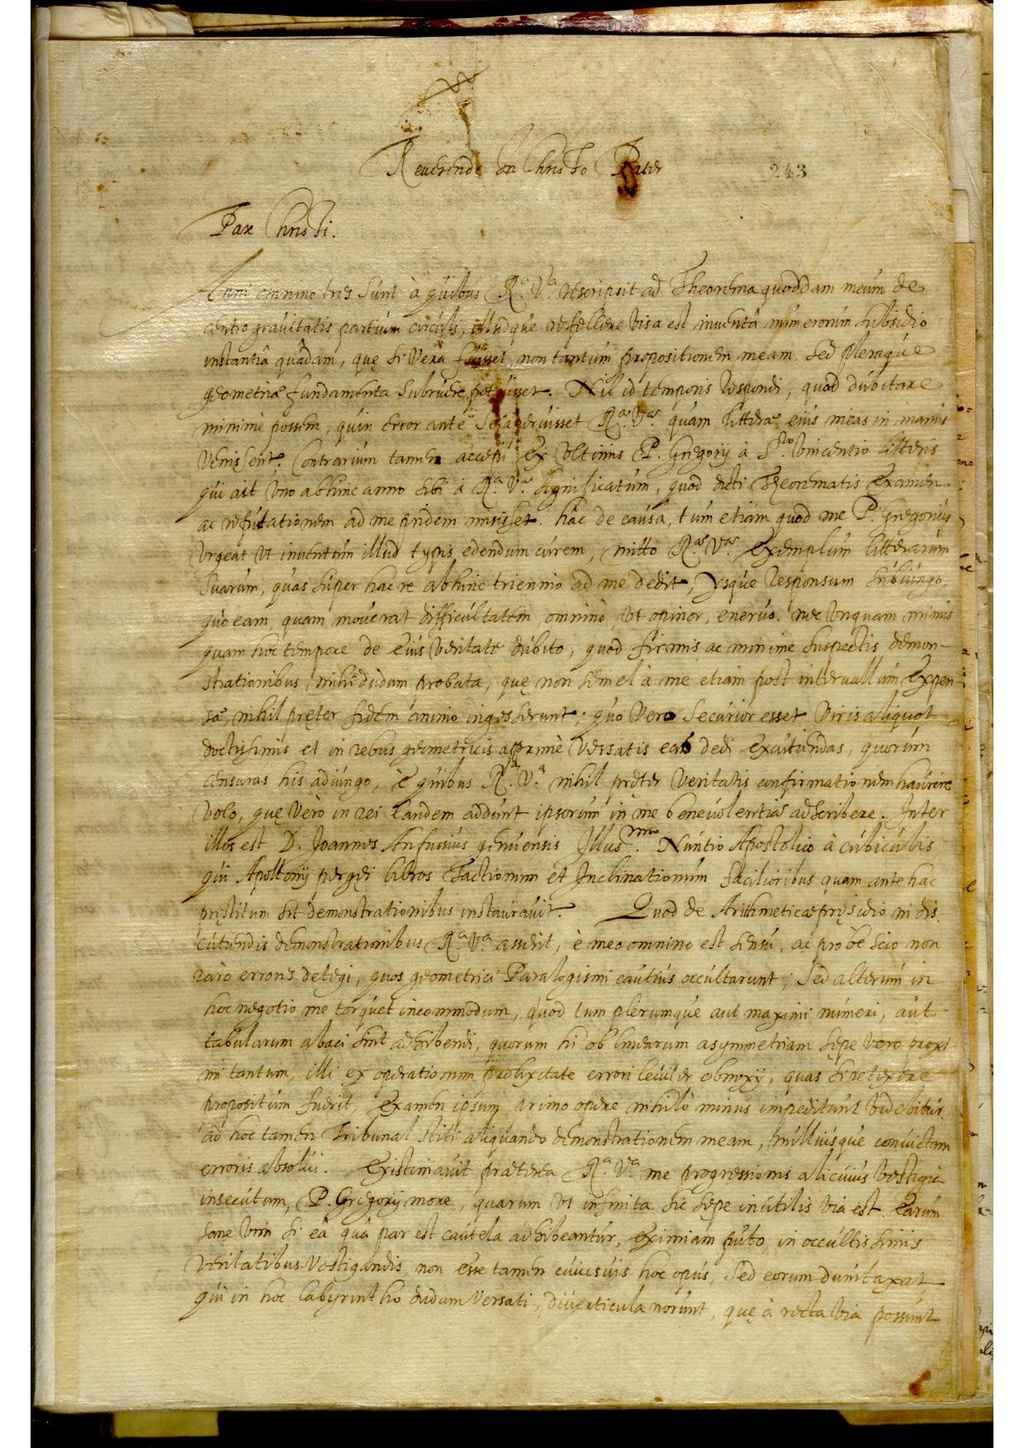 Reuerende in Christo Pater
243
Pax Christi.
Anni omnino tres sunt à quibus Rª. Vª. rescripsit ad Theorema quoddam meum de
centro grauitatis partium circuli, illudque refellere visa est inuentâ numerorum subsidio
instantiâ quâdam, quę si vera fuisset, non tantùm propositionem meam sed pleraque
geometriæ fundamenta subruere potuisset. Nil id temporis respondi, quòd dubitare
minimè possem, quin error ante Rª. Vª. quàm litteræ eius meas in manus
venissent. Contrarium tamen accepi ex vltimis P. Gregorij à Sto. Vincentio litteris
qui ait vno abhinc anno sibi à Rª. Vª. significatum, quòd dicti Theorematis examen
ac refutationem ad me pridem misisset. hac de causa, tum etiam quod me P. Gregorius
vrgeat vt inuentum illud typis edendum curem, mitto Ræ. Væ. exemplum litterarum
suarum, quas super hac re abhinc triennio ad me dedit, ysque responsum subiungo
quo eam, quam mouerat difficultatem omninò vt opinor, eneruo. nec vnquam minus
quàm hoc tempore de eius veritate dubito, quod firmis ac minime suspectis demon-
strationibus mihi dudum probata, quę non semel à me etiam post interuallum expen-
sæ, nihil pręter fidem animo ingesserunt; quo vero securior esset viris aliquot
doctissimis et in rebus geometricis apprimè versatis eas dedi excutiendas, quorum
censuras his adiungo, è quibus Rª. Vª. nihil pręter veritatis confirmationem haurire
volo, quę verò in rei laudem addunt ipsorum in me beneuolentiæ adscribere. Inter
illos est D. Joannes Anfussius genuensis Illusmo. Nuntio Apostolico à cubiculis
qui Apollonij pergęi libros Tactionum et Inclinationum facilioribus quam ante hac
pręstitum sit demonstrationibus instaurauit. Quod de Arithmeticæ pręsidio in dis-
cutiendis demonstrationibus Rª. Vª. asserit, è meo omnino est sensu, ac probè scio non
rarò errores detegi, quos geometrici Paralogismi cautius occultarunt; sed alterum in
hoc negotio me torquet incommodum, quod tum plerumque aut maximi numeri, aut
tabularum abaci sint adhibendi, quorum hi ob linearum asymmetriam sępe vero proxi-
mi tantum, illi ex operationum prolixitate errori leuiter obnoxij, quas si retexere
propositum fuerit, examen ipsum primo opere nihilo minus impeditum videbitur
ad hoc tamen Tribunal stiti aliquando demonstrationem meam, nulliusque conuictam
erroris absolui. Existimauit præterea Rª. Vª. me progressionis alicuius vestigia
insecutum, P. Gregorij more, quarum vt infinita sic sępe inutilis via est. Earum
sane vim si eâ quâ par est cautela adhibeantur, eximiam puto, in occultissimis
veritatibus vestigandis, non esse tamen cuiusuis hoc opus, sed eorum duntaxat
qui in hoc labyrintho dudum versati, diuerticula norunt, quę à recta via possunt